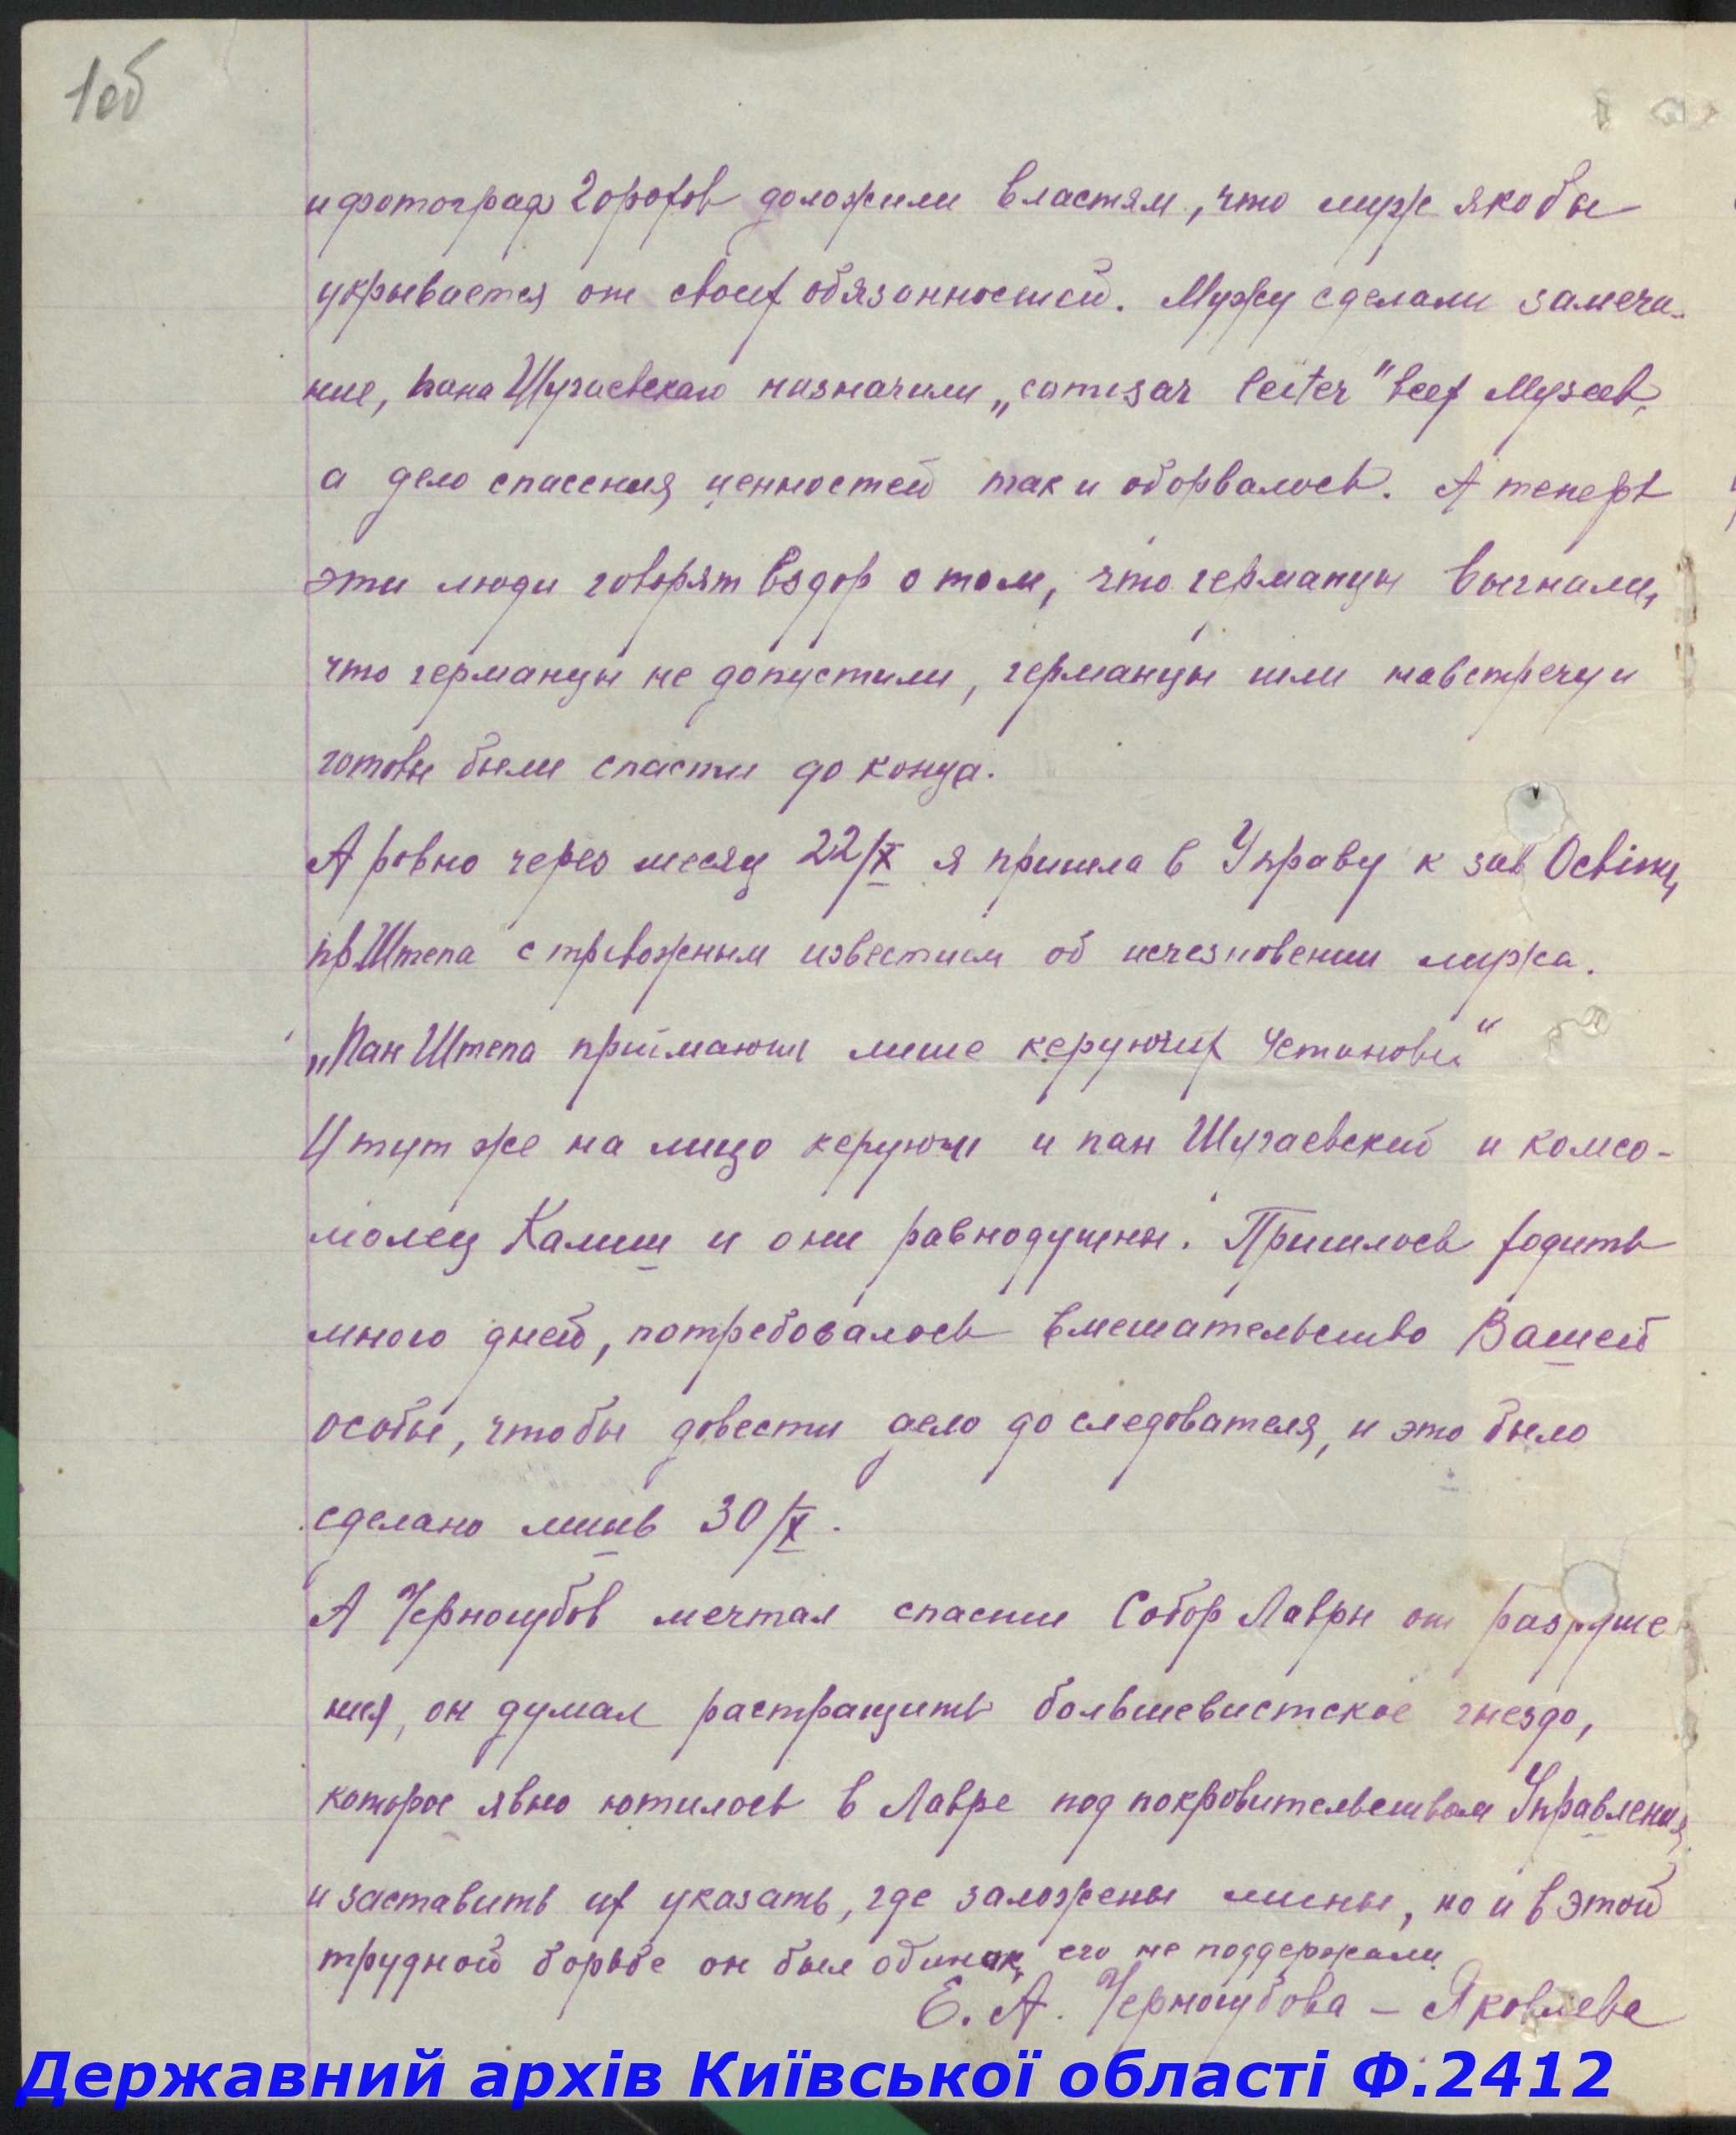 1об
и фотограф Горохов доложили властям, что муж якобы
укрывается от своих обязанностей. Мужу сделали замеча-
ние, пана Шугаевского назначили „comisar leiter" всех Музеев,
а дело спасения ценностей так и оборвалось. А теперь
эти люди говорят вздор о том, что германцы выгнали,
что германцы не допустили, германцы шли навстречу и
готовы были спасти до конца.
А ровно через месяц 22/X я пришла в Управу к зав Освіти,
пр Штепа с тревожным известием об исчезновении мужа.
„Пан Штепа приймають лише керуючих Установи"
И тут же на лицо керуючі и пан Шугаевский и комсо-
молец Калиш и они равнодушны. Пришлось ходить
много дней, потребовалось вмешательство Вашей
особы, чтобы довести дело до следователя, и это было
сделано лишь 30/X.
А Черногубов мечтал спасти Собор Лавры от разруше
ния, он думал растращить большевистское гнездо,
которое явно ютилось в Лавре под покровительством Управления,
и заставить их указать, где заложены мины, но и в этой
трудной борьбе он был одинок, его не поддержали.
Е. А. Черногубова – Яковлева
Державний архів Київської області Ф.2412